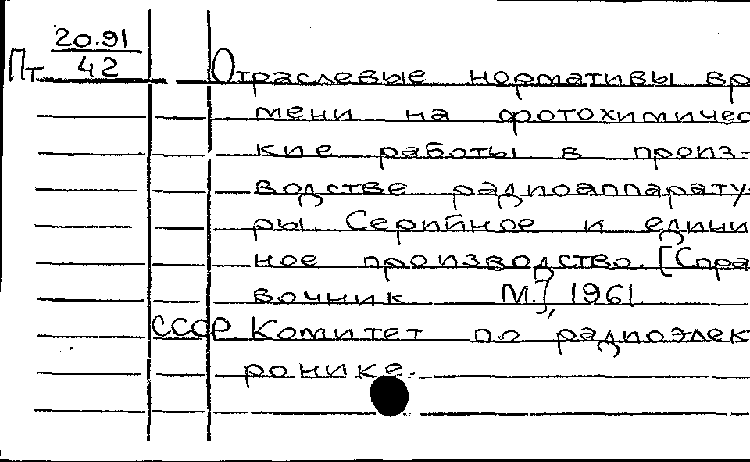 20.91
Пт 42
Отраслевые нормативы вре
мени на фотохимичес
кие работы в произ-
водстве радиоаппарату
ры. Серийное и единич
ное производство. [Спра
вочник М.], 1961
СССР Комитет по радиоэлект
ронике.